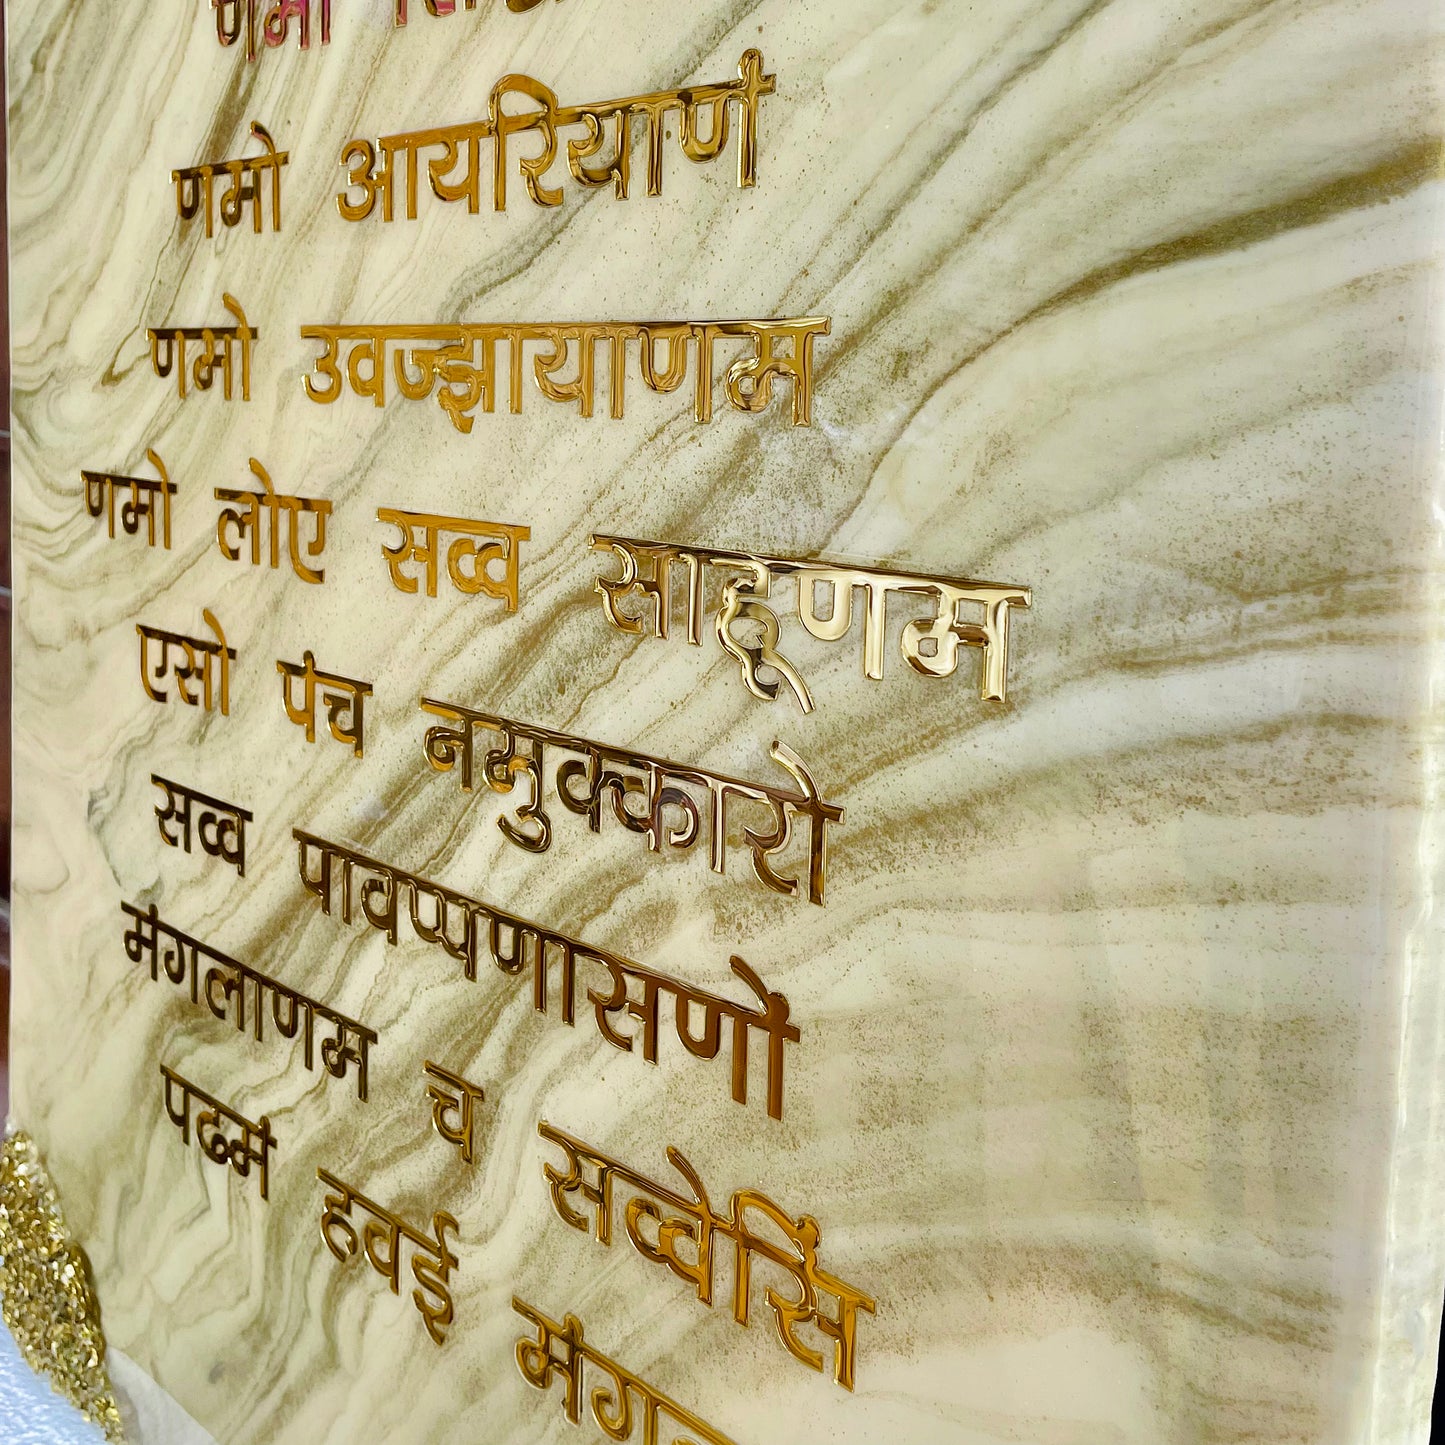 णमो
णमो आयरियाणं
णमो उवज्झायाणम
णमो लोए सव्व साहूणम
एसो पंच नमुक्कारो
सव्व पावप्पणासणों
मंगलाणम च सव्वेसिं
पढमं हवई